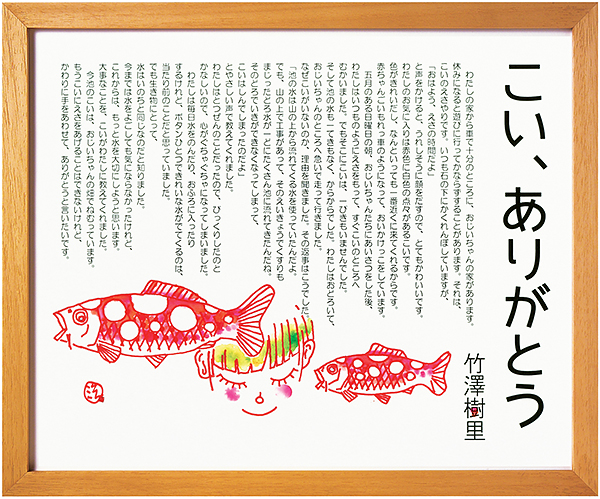 こい、ありがとう
竹澤樹里
わたしの家から車で十分のところに、おじいちゃんの家があります。
休みになると遊びに行ってかならずすることがあります。それは、
こいのえさやりです。いつも石の下にかくれんぼしていますが、
「おはよう、えさの時間だよ」
と声をかけると、うれしそうに顔をだすので、とてもかわいいです。
わたしのお気に入りは赤色に白色の点々があるこいです。
色がきれいだし、なんといっても一番近くに来てくれるからです。
赤ちゃんごいもれっ車のようになって、おいかけっこをしています。
五月のある日曜日の朝、おじいちゃんたちにあいさつをした後、
わたしはいつものようにえさをもって、すぐこいのところへ
むかいました。でもそこにこいは、一ぴきもいませんでした。
そして池の水も一てきもなく、からからでした。わたしはおどろいて、
おじいちゃんのところへ急いで走って行きました。
なぜこいがいないのか、理由を聞きました。その返事はこうでした。
「池の水は山の上から流れてくる水を使っていたんだよ。
でも、山の上で工事があって、そのえいきょうでくすりも
まじったどろ水が一どにたくさん池に流れてきたんだね。
そのどろでいきができなくなってしまって、
こいはしんでしまったのだよ」
とやさしい声で教えてくれました。
わたしはとつぜんのことだったので、びっくりしたのと
かなしいので、心がぐちゃぐちゃになってしまいました。
わたしは毎日水をのんだり、おふろに入ったり
するけれど、ボタンひとつできれいな水がでてくるのは、
当たり前のことだと思っていました。
でも生き物にとって、
水はいのちと同じなのだと知りました。
今までは水をよごしても気にならなかったけれど、
これからは、もっと水を大切にしようと思います。
大事なことを、こいがわたしに教えてくれました。
今池のこいは、おじいちゃんの畑でねむっています。
もうこいにえさをあげることはできないけれど、
かわりに手をあわせて、ありがとうと言いたいです。